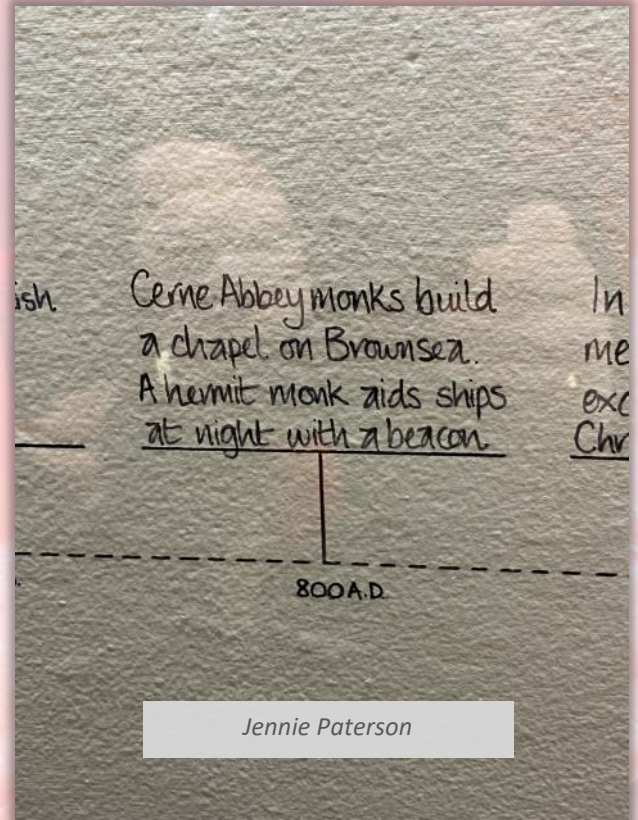 ish
Cerne Abbey monks build
a chapel on Brownsea.
A hermit monk aids ships
at night with a beacon
In
me
exc
Chr
800 A.D.
Jennie Paterson